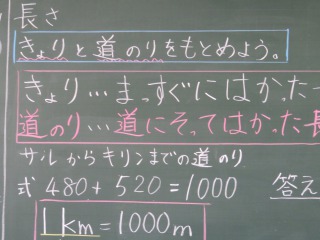 長さ
きょりと道のりをもとめよう。
きょり…まっすぐにはかった
道のり…道にそってはかった長
サルからキリンまでの道のり
式 480+520=1000 答え
1km=1000m